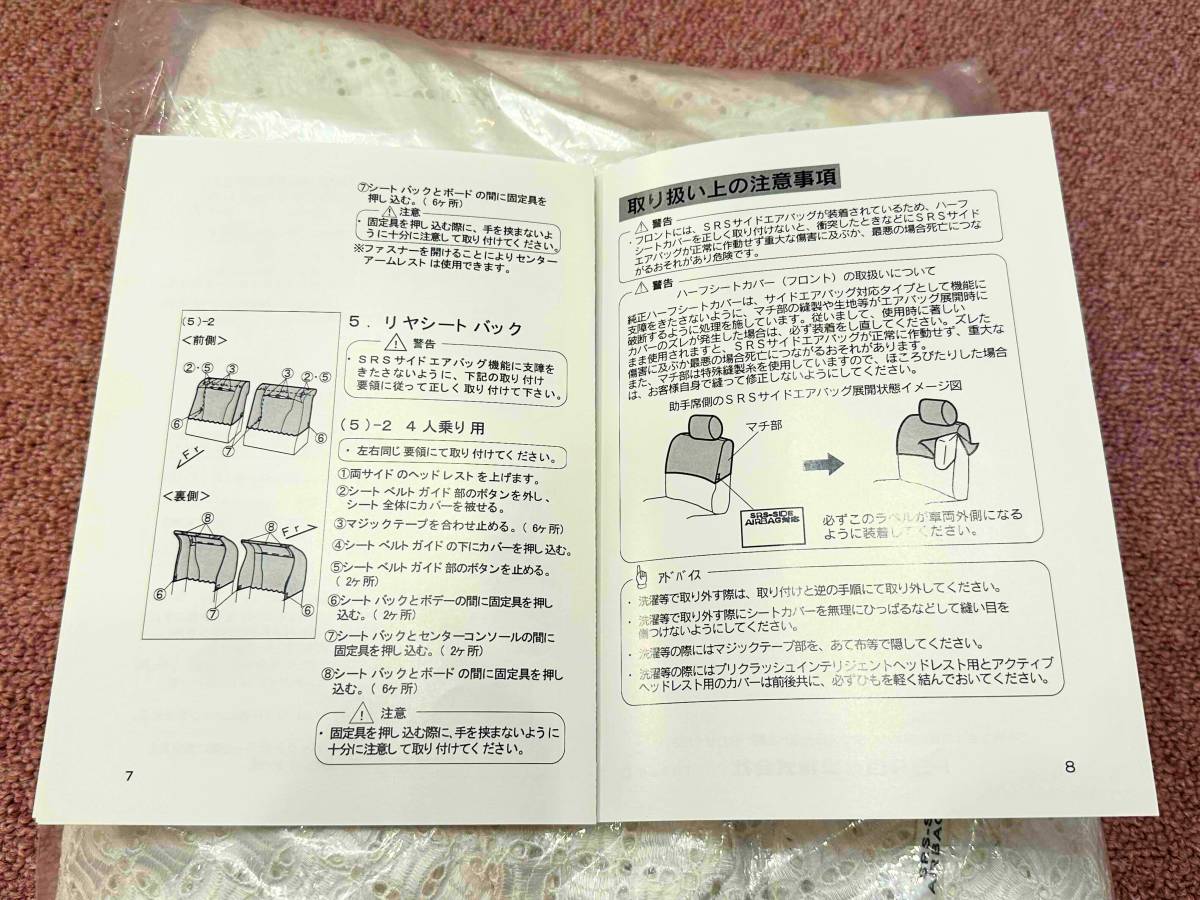 ⑦シート バックとボードの間に固定具を
押し込む。( 6ヶ所)
注意
・固定具を押し込む際に、手を挟まないよ
うに十分に注意して取り付けてください。
※ファスナーを開けることによりセンター
アームレスト は使用できます。
(5)-2
<前側>
②・⑤ ③ ③ ②・⑤
⑥ ⑦ ⑥
Fr
<裏側>
⑧ ⑧ Fr
⑥ ⑦ ⑥
5. リヤシート バック
警告
・SRSサイドエアバッグ機能に支障を
きたさないように、下記の取り付け
要領に従って正しく取り付けて下さい。
(5)-2 4人乗り用
・左右同じ要領にて取り付けてください。
①両サイドのヘッドレストを上げます。
②シート ベルトガイド 部のボタンを外し、
シート 全体にカバーを被せる。
③マジックテープを合わせ止める。( 6ヶ所)
④シート ベルトガイドの下にカバーを押し込む。
⑤シート ベルトガイド 部のボタンを止める。
( 2ヶ所)
⑥シート バックとボデーの間に固定具を押し
込む。( 2ヶ所)
⑦シート バックとセンターコンソールの間に
固定具を押し込む。( 2ヶ所)
⑧シート バックとボードの間に固定具を押し
込む。( 6ヶ所)
注意
・固定具を押し込む際に、手を挟まないように
十分に注意して取り付けてください。
7
取り扱い上の注意事項
警告
・フロントには、SRSサイドエアバッグが装着されているため、ハーフ
シートカバーを正しく取り付けないと、衝突したときなどにSRSサイド
エアバッグが正常に作動せず重大な傷害に及ぶか、最悪の場合死亡につな
がるおそれがあり危険です。
警告
ハーフシートカバー(フロント)の取扱いについて
純正ハーフシートカバーは、サイドエアバッグ対応タイプとして機能に
支障をきたさないように、マチ部の縫製や生地等がエアバッグ展開時に
破断するように処理を施しています。従いまして、使用時に著しい
カバーのズレが発生した場合は、必ず装着をし直してください。ズレた
まま使用されますと、SRSサイドエアバッグが正常に作動せず、重大な
傷害に及ぶか最悪の場合死亡につながるおそれがあります。
また、マチ部は特殊縫製糸を使用していますので、ほころびたりした場合
は、お客様自身で縫って修正しないようにしてください。
助手席側のSRSサイドエアバッグ展開状態イメージ図
マチ部
SRS-SIDE
AIRBAG対応
必ずこのラベルが車両外側になる
ように装着してください。
アドバイス
・洗濯等で取り外す際は、取り付けと逆の手順にて取り外してください。
・洗濯等で取り外す際にシートカバーを無理にひっぱるなどして縫い目を
傷つけないようにしてください。
・洗濯等の際にはマジックテープ部を、あて布等で隠してください。
・洗濯等の際にはプリクラッシュインテリジェントヘッドレスト用とアクティブ
ヘッドレスト用のカバーは前後共に、必ずひもを軽く結んでおいてください。
8